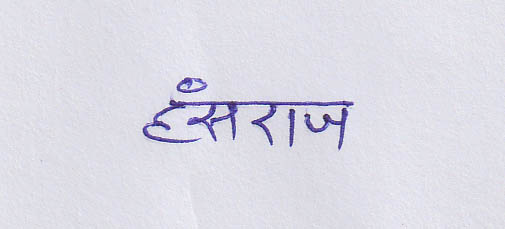 हँसराज